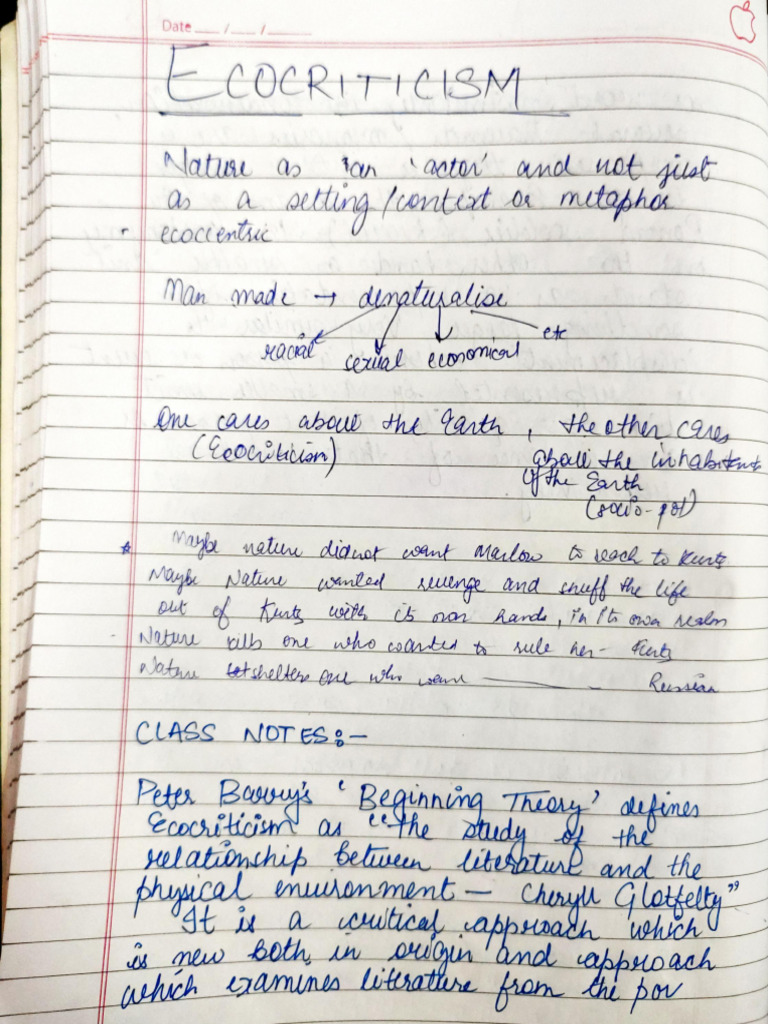 Date __ / __ / ____
ECOCRITICISM
Nature as an 'actor' and not just
as a setting/context or metaphor
- ecocentric
Man made → denaturalise
racial sexual economical etc
One cares about the Earth , the other cares
(Ecocriticism) about the inhabitants
of the Earth
(socio-pol)
* Maybe nature did not want Marlow to reach to Kurtz
Maybe Nature wanted revenge and snuff the life
out of Kurtz with its own hands, in its own realm
- Nature kills one who wanted to rule her - Kurtz
Nature shelters one who Russian
CLASS NOTES:-
Peter Barry's 'Beginning Theory' defines
Ecocriticism as "the study of the
relationship between literature and the
physical environment — Cheryll Glotfelty"
It is a critical approach which
is new both in origin and approach
which examines literature from the pov